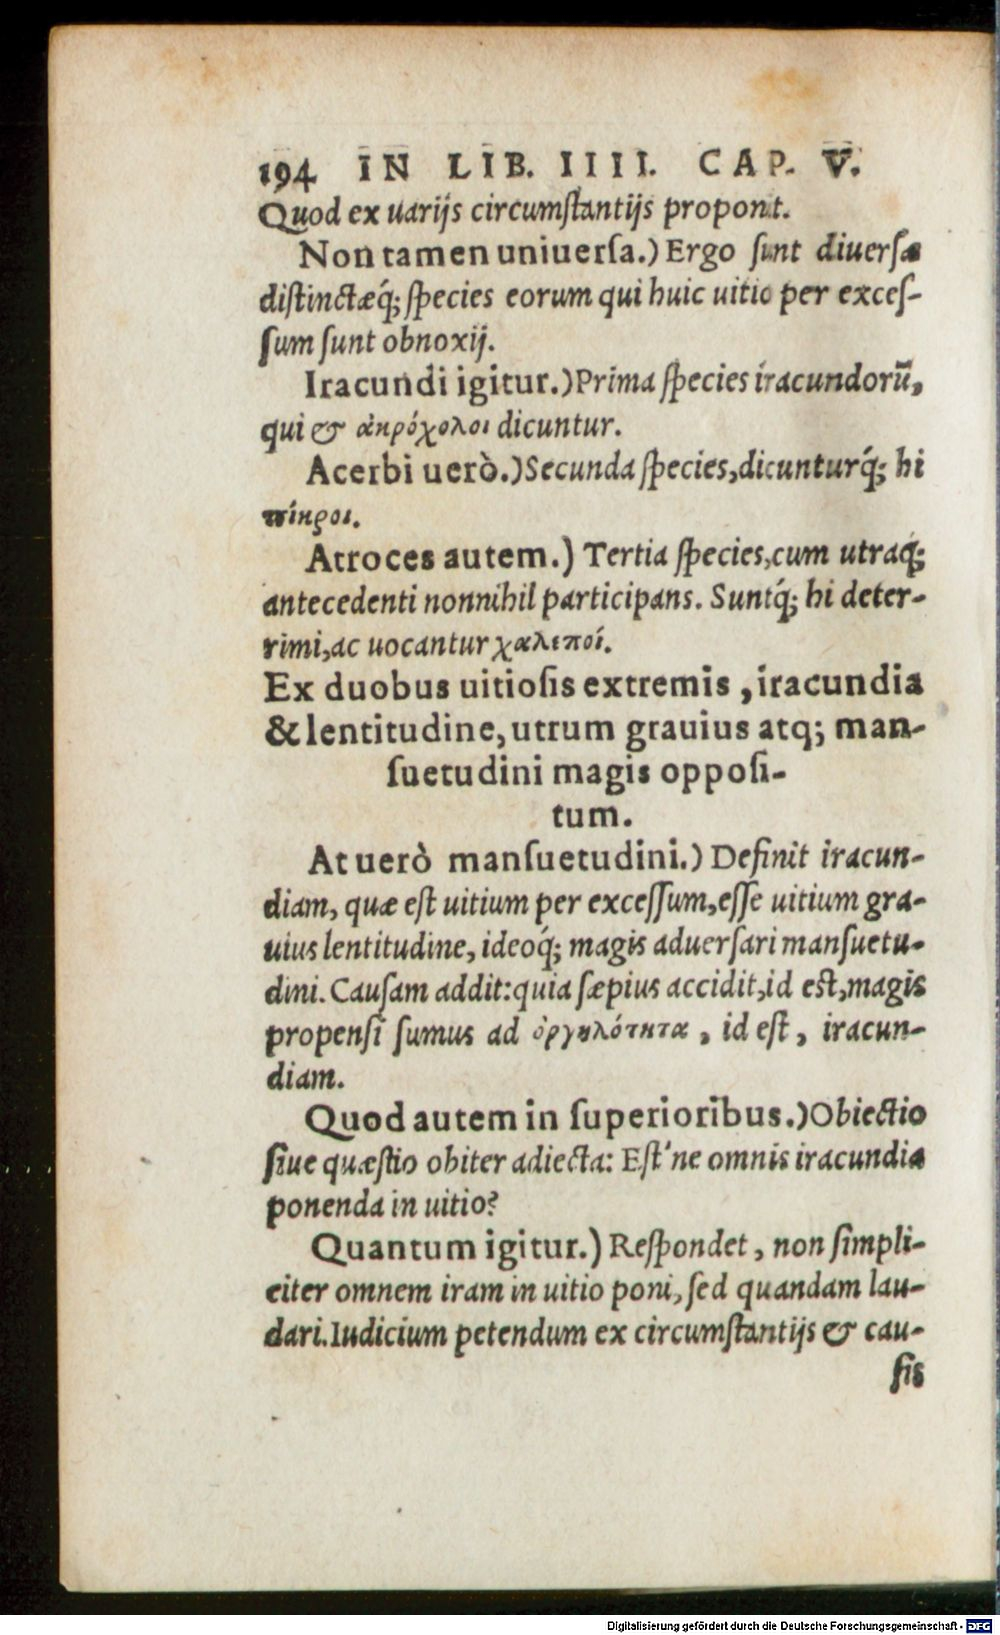 194 IN LIB. IIII. CAP. V.
Quod ex uarijs circumſtantijs proponit.
Non tamen uniuerſa.) Ergo ſunt diuerſæ
diſtinctæq́; ſpecies eorum qui huic uitio per exceſ-
ſum ſunt obnoxij.
Iracundi igitur.) Prima ſpecies iracundorũ,
qui & ἀκρόχολοι dicuntur.
Acerbi uerò.) Secunda ſpecies, dicunturq́; hi
πίκροι.
Atroces autem.) Tertia ſpecies, cum utraq́;
antecedenti nonnihil participans. Suntq́; hi deter-
rimi, ac uocantur χαλεποί.
Ex duobus uitioſis extremis, iracundia
& lentitudine, utrum grauius atq; man-
ſuetudini magis oppoſi-
tum.
At uerò manſuetudini.) Definit iracun-
diam, quæ eſt uitium per exceſſum, eſſe uitium gra-
uius lentitudine, ideoq́; magis aduerſari manſuetu-
dini. Cauſam addit: quia ſæpius accidit, id eſt, magis
propenſi ſumus ad ὀργιλότητα, id eſt, iracun-
diam.
Quod autem in ſuperioribus.) Obiectio
ſiue quæſtio obiter adiecta: Eſt'ne omnis iracundia
ponenda in uitio?
Quantum igitur.) Reſpondet, non ſimpli-
citer omnem iram in uitio poni, ſed quandam lau-
dari. Iudicium petendum ex circumſtantijs & cau-
ſis
Digitalisierung gefördert durch die Deutsche Forschungsgemeinschaft - DFG